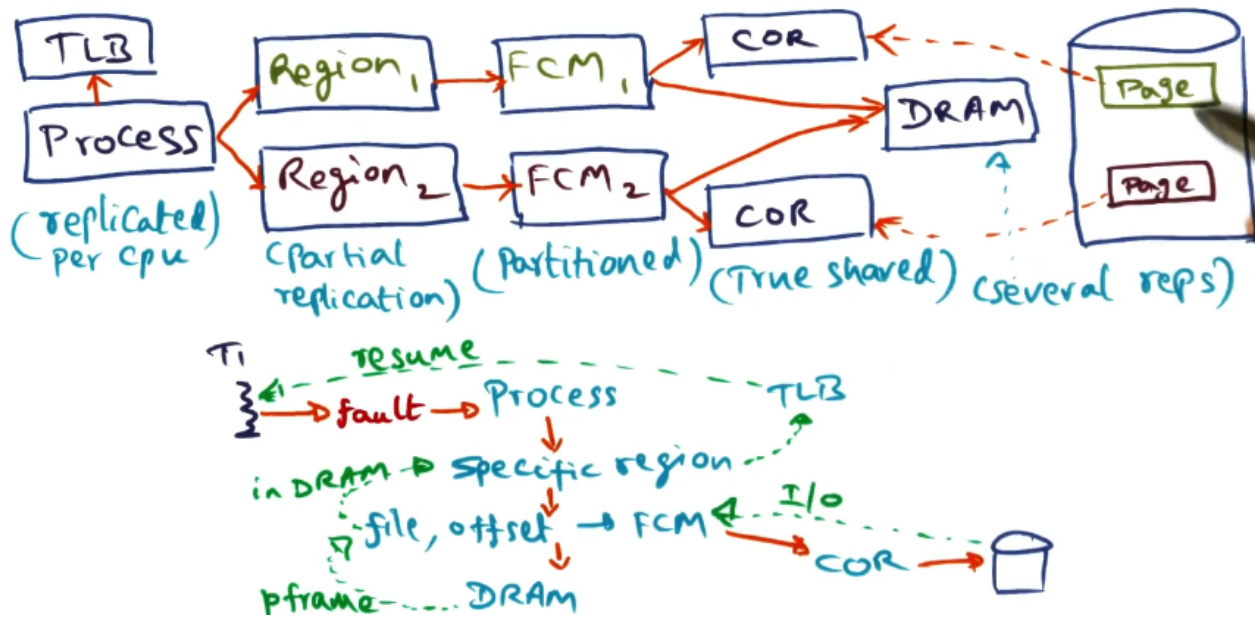 TLB
Process
(replicated)
per cpu
Region 1
Region 2
(partial
replication)
FCM 1
FCM 2
(Partitioned)
COR
COR
(True shared)
DRAM
(several reps)
Page
Page
T1
resume
fault
Process
TLB
in DRAM
specific region
I/O
file, offset
FCM
COR
pframe
DRAM